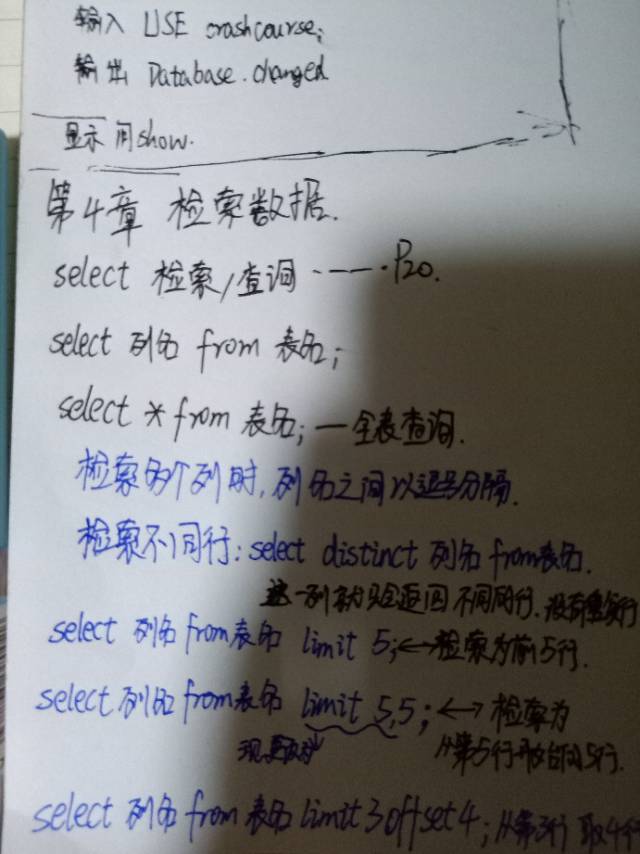 输入 USE crashcourse;
输出 Database changed
显示 用show.
第4章 检索数据.
select 检索/查询 ----- P20.
select 列名 from 表名;
select * from 表名; —全表查询.
检索多个列时,列名之间以逗号分隔.
检索不同行: select distinct 列名 from表名.
这一列就只会返回不同行,没有重复行
select 列名 from表名 limit 5; ↔检索为前5行.
select 列名 from表名 limit 5,5; ↔ 检索为
从第5行开始的5行.
select 列名 from 表名 limit 3 offset 4; 从第3行 取4行